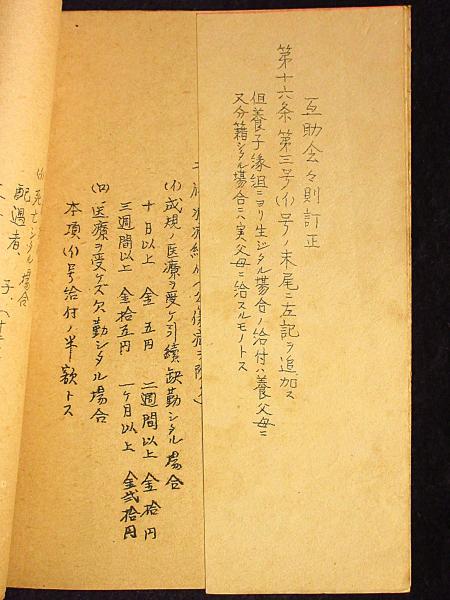 互助会々則訂正
第十六条第三号(イ)号ノ末尾ニ左記ヲ追加ス
但養子縁組ニヨリ生ジタル場合ノ給付ハ養父母ニ
又分籍シタル場合ニハ実父母ニ給スルモノトス
(イ)成規ノ医療ヲ受ケ引続缺勤シタル場合
十日以上 金五円 二週間以上 金拾円
三週間以上 金拾五円 一ヶ月以上 金弐拾円
(ロ)医療ヲ受ケズ欠勤シタル場合
本項(イ)号給付ノ半額トス
死亡シタル場合
配遇者、